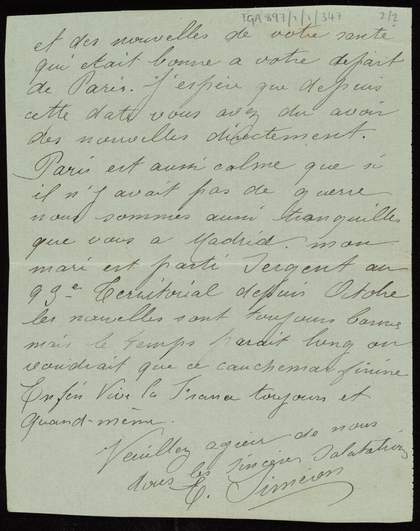 TGA 897/1/1/347 2/2
et des nouvelles de votre santé
qui était bonne a votre départ
de Paris. J'espère que depuis
cette date vous avez du avoir
des nouvelles directement.
Paris est aussi calme que si
il n'y avait pas de guerre
nous sommes aussi tranquilles
que vous a Madrid. mon
mari est parti Sergent au
99e Territorial depuis Octobre
les nouvelles sont toujours bonnes
mais le temps parait long on
voudrait que ce cauchemar finisse
Enfin Vive la France toujours et
quand-même.
Veuillez agréer de nous
tous les sincères salutations